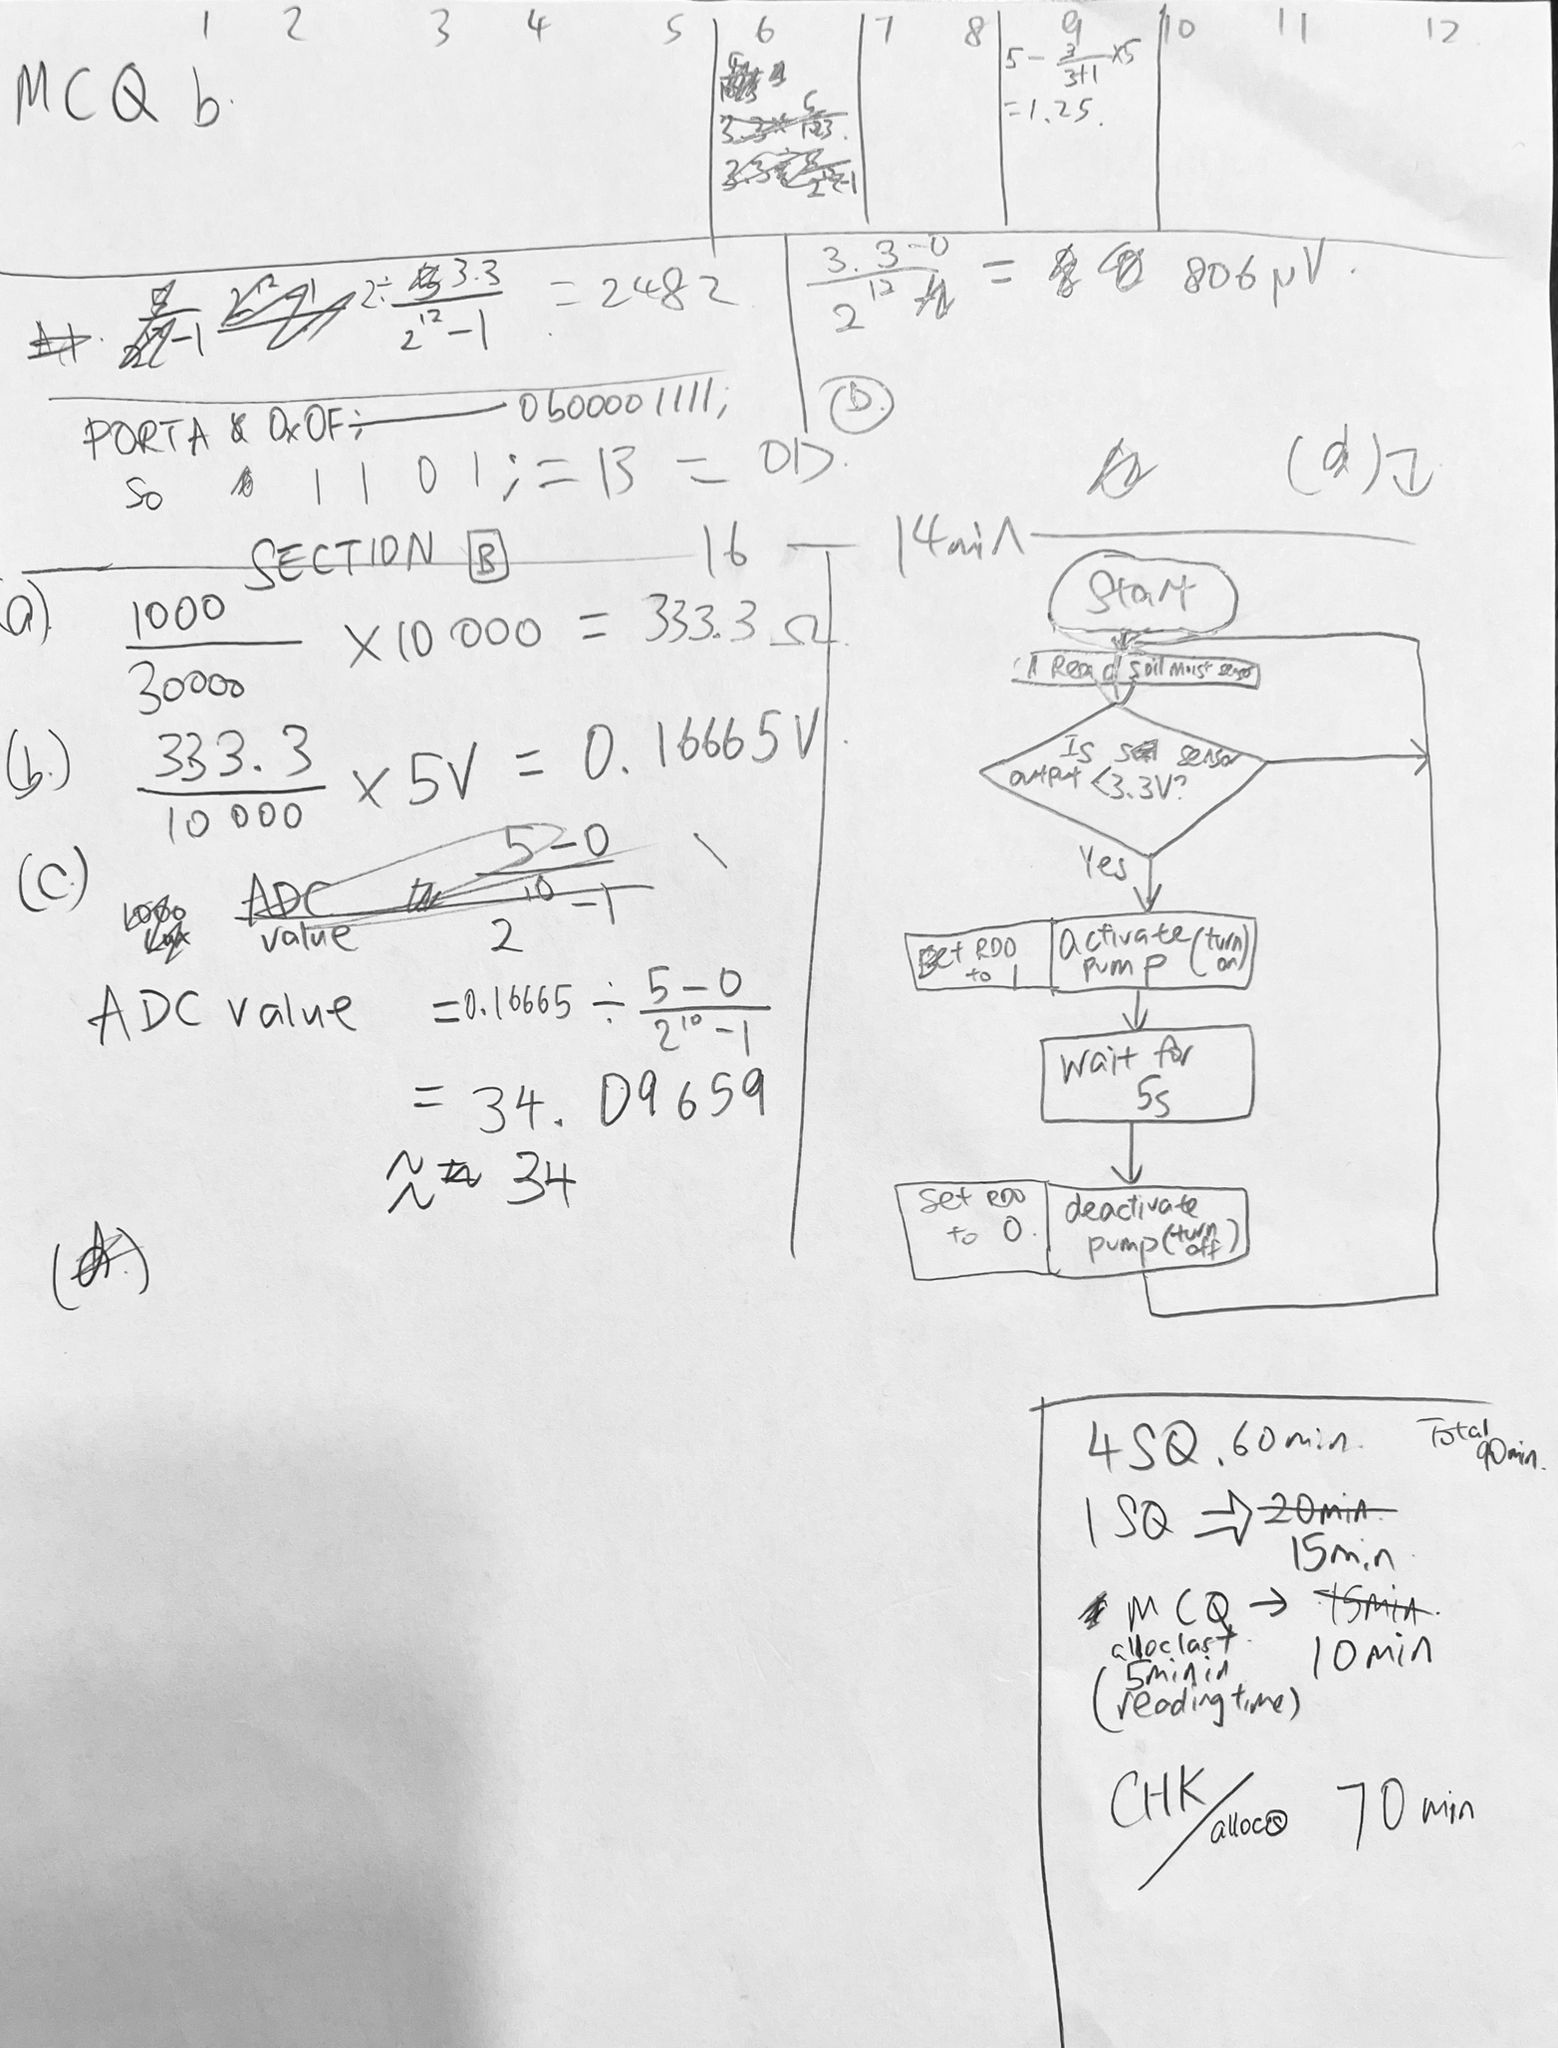 1 2 3 4 5 6 7 8 9 10 11 12
MCQ b.
5 - 3/(3+1) ×5
= 1.25.
2 ÷ 3.3/(2^12 - 1) = 2482
(3.3 - 0)/2^12 = 806 μV.
D.
PORTA & 0x0F; 0b00001111;
so 1 1 0 1 ; = 13 = 0D.
(d) ↓
SECTION B 16 — 14min
(a) 1000/30000 × 10 000 = 333.3 Ω.
(b.) 333.3/10 000 × 5V = 0.16665V.
(c.) ADC value 5-0
2^10 - 1
ADC value = 0.16665 ÷ (5-0)/(2^10 - 1)
= 34.09659
≈ 34
Start
Read soil moist sensor
Is sensor
output <3.3V?
Yes
Set RD0
to 1
activate (turn on)
pump
wait for
5s
Set RD0
to 0.
deactivate
pump (turn off)
4 SQ. 60min. Total 90min.
1 SQ ⇒ 20min.
15min.
MCQ → 15min.
10min
alloc last
5min in
(reading time)
CHK/ 70 min